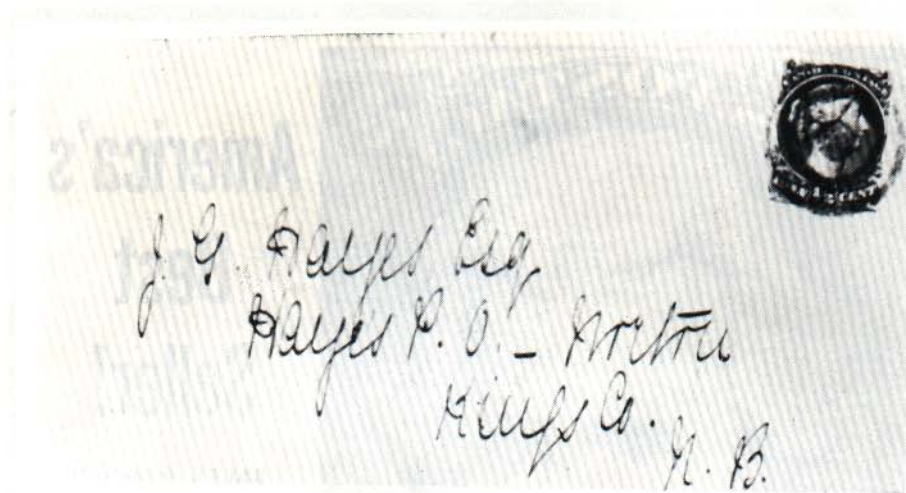 J. G. Hayes Esq.
Hayes P. O. – Norton
Kings Co.
N. B.
America's